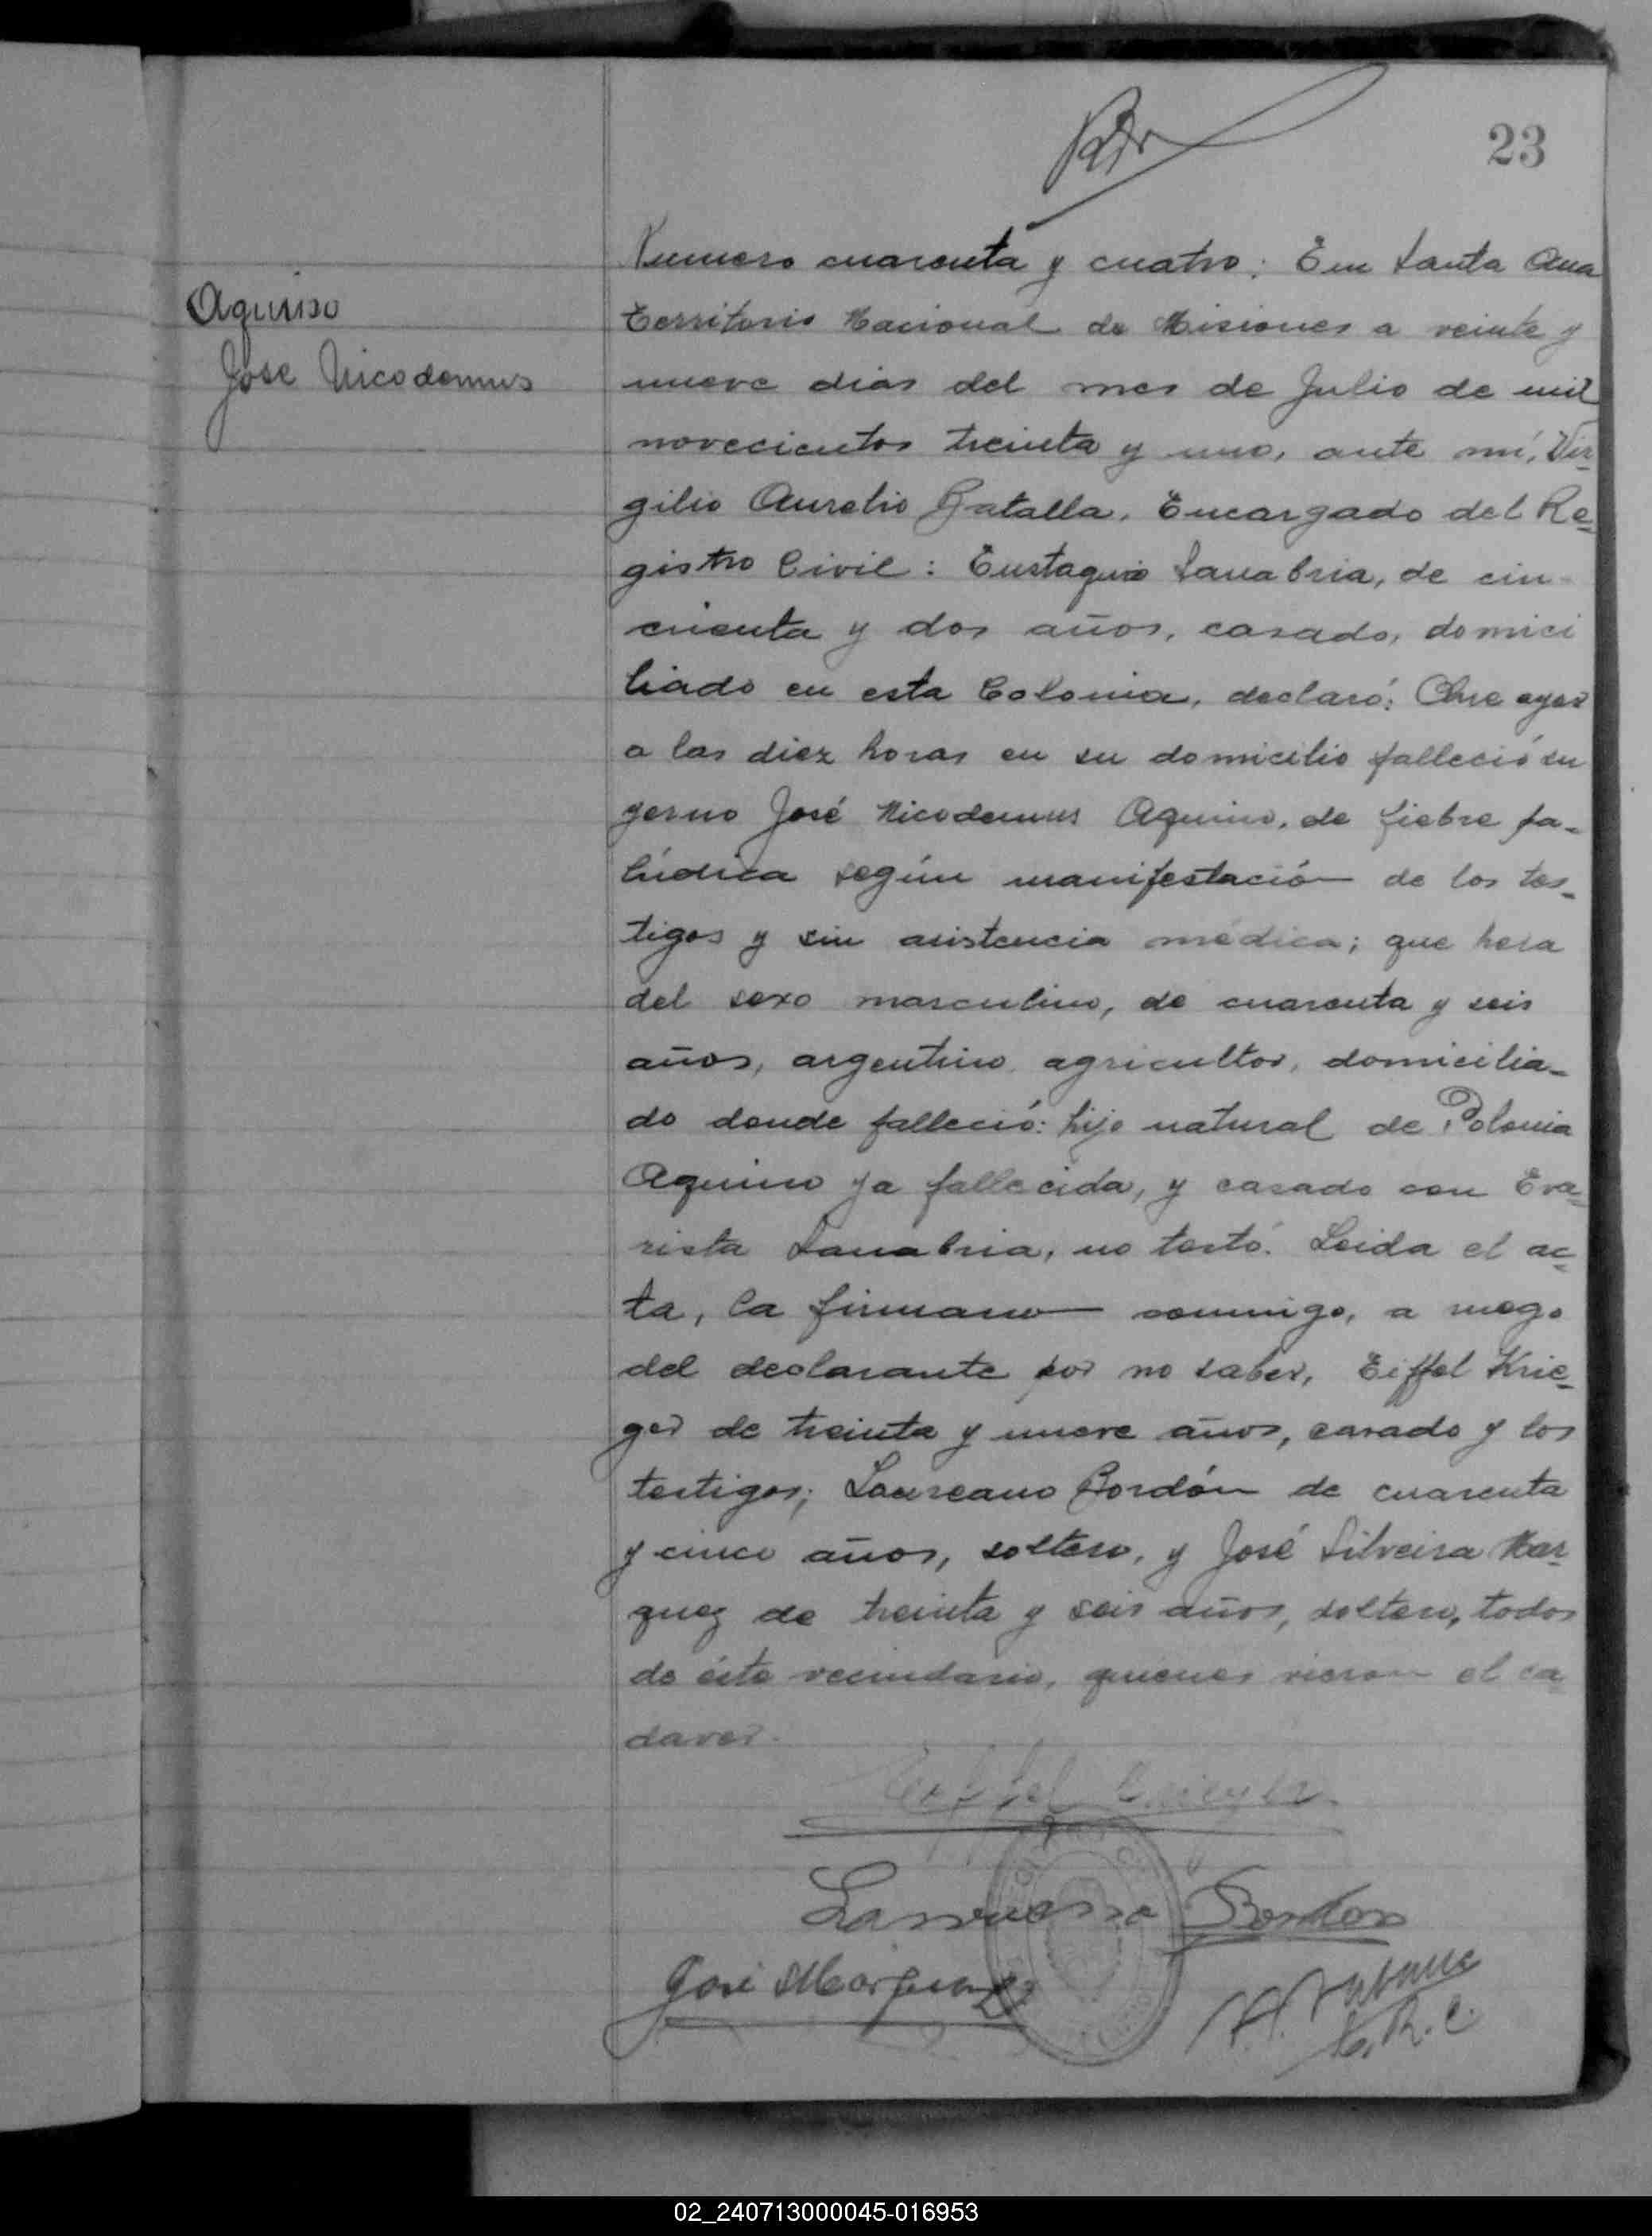 23
Aquino
Jose Nicodemus
Numero cuarenta y cuatro: En Santa Ana
Territorio Nacional de Misiones a veinte y
nueve dias del mes de Julio de mil
novecientos treinta y uno, ante mí, Vir-
gilio Aurelio Batalla, Encargado del Re-
gistro Civil: Eustaquio Sanabria, de cin-
cuenta y dos años, casado, domici
liado en esta Colonia, declaró: Que ayer
a las diez horas en su domicilio falleció su
yerno José Nicodemus Aquino, de fiebre pa-
lúdica según manifestación de los tes-
tigos y sin asistencia médica; que hera
del sexo masculino, de cuarenta y seis
años, argentino, agricultor, domicilia-
do donde falleció: hijo natural de Polonia
Aquino ya fallecida, y casado con Eva-
rista Sanabria, no testó. Leida el ac-
ta, la firmaron conmigo, a ruego
del declarante por no saber, Eiffel Krie-
ger de treinta y nueve años, casado y los
testigos; Laureano Bordón de cuarenta
y cinco años, soltero, y José Silveira Mar-
quez de treinta y seis años, soltero, todos
de éste vecindario, quienes vieron el ca-
daver.
Eiffel Krieger
Laureano Bordon
José Marquez
E.R.C.
02_240713000045-016953